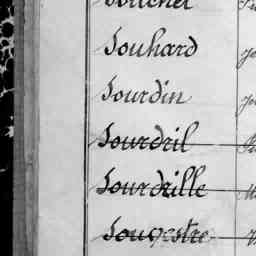 Souchet
Souhard
Sourdin
Sourdril
Sourdrille
Sougestre